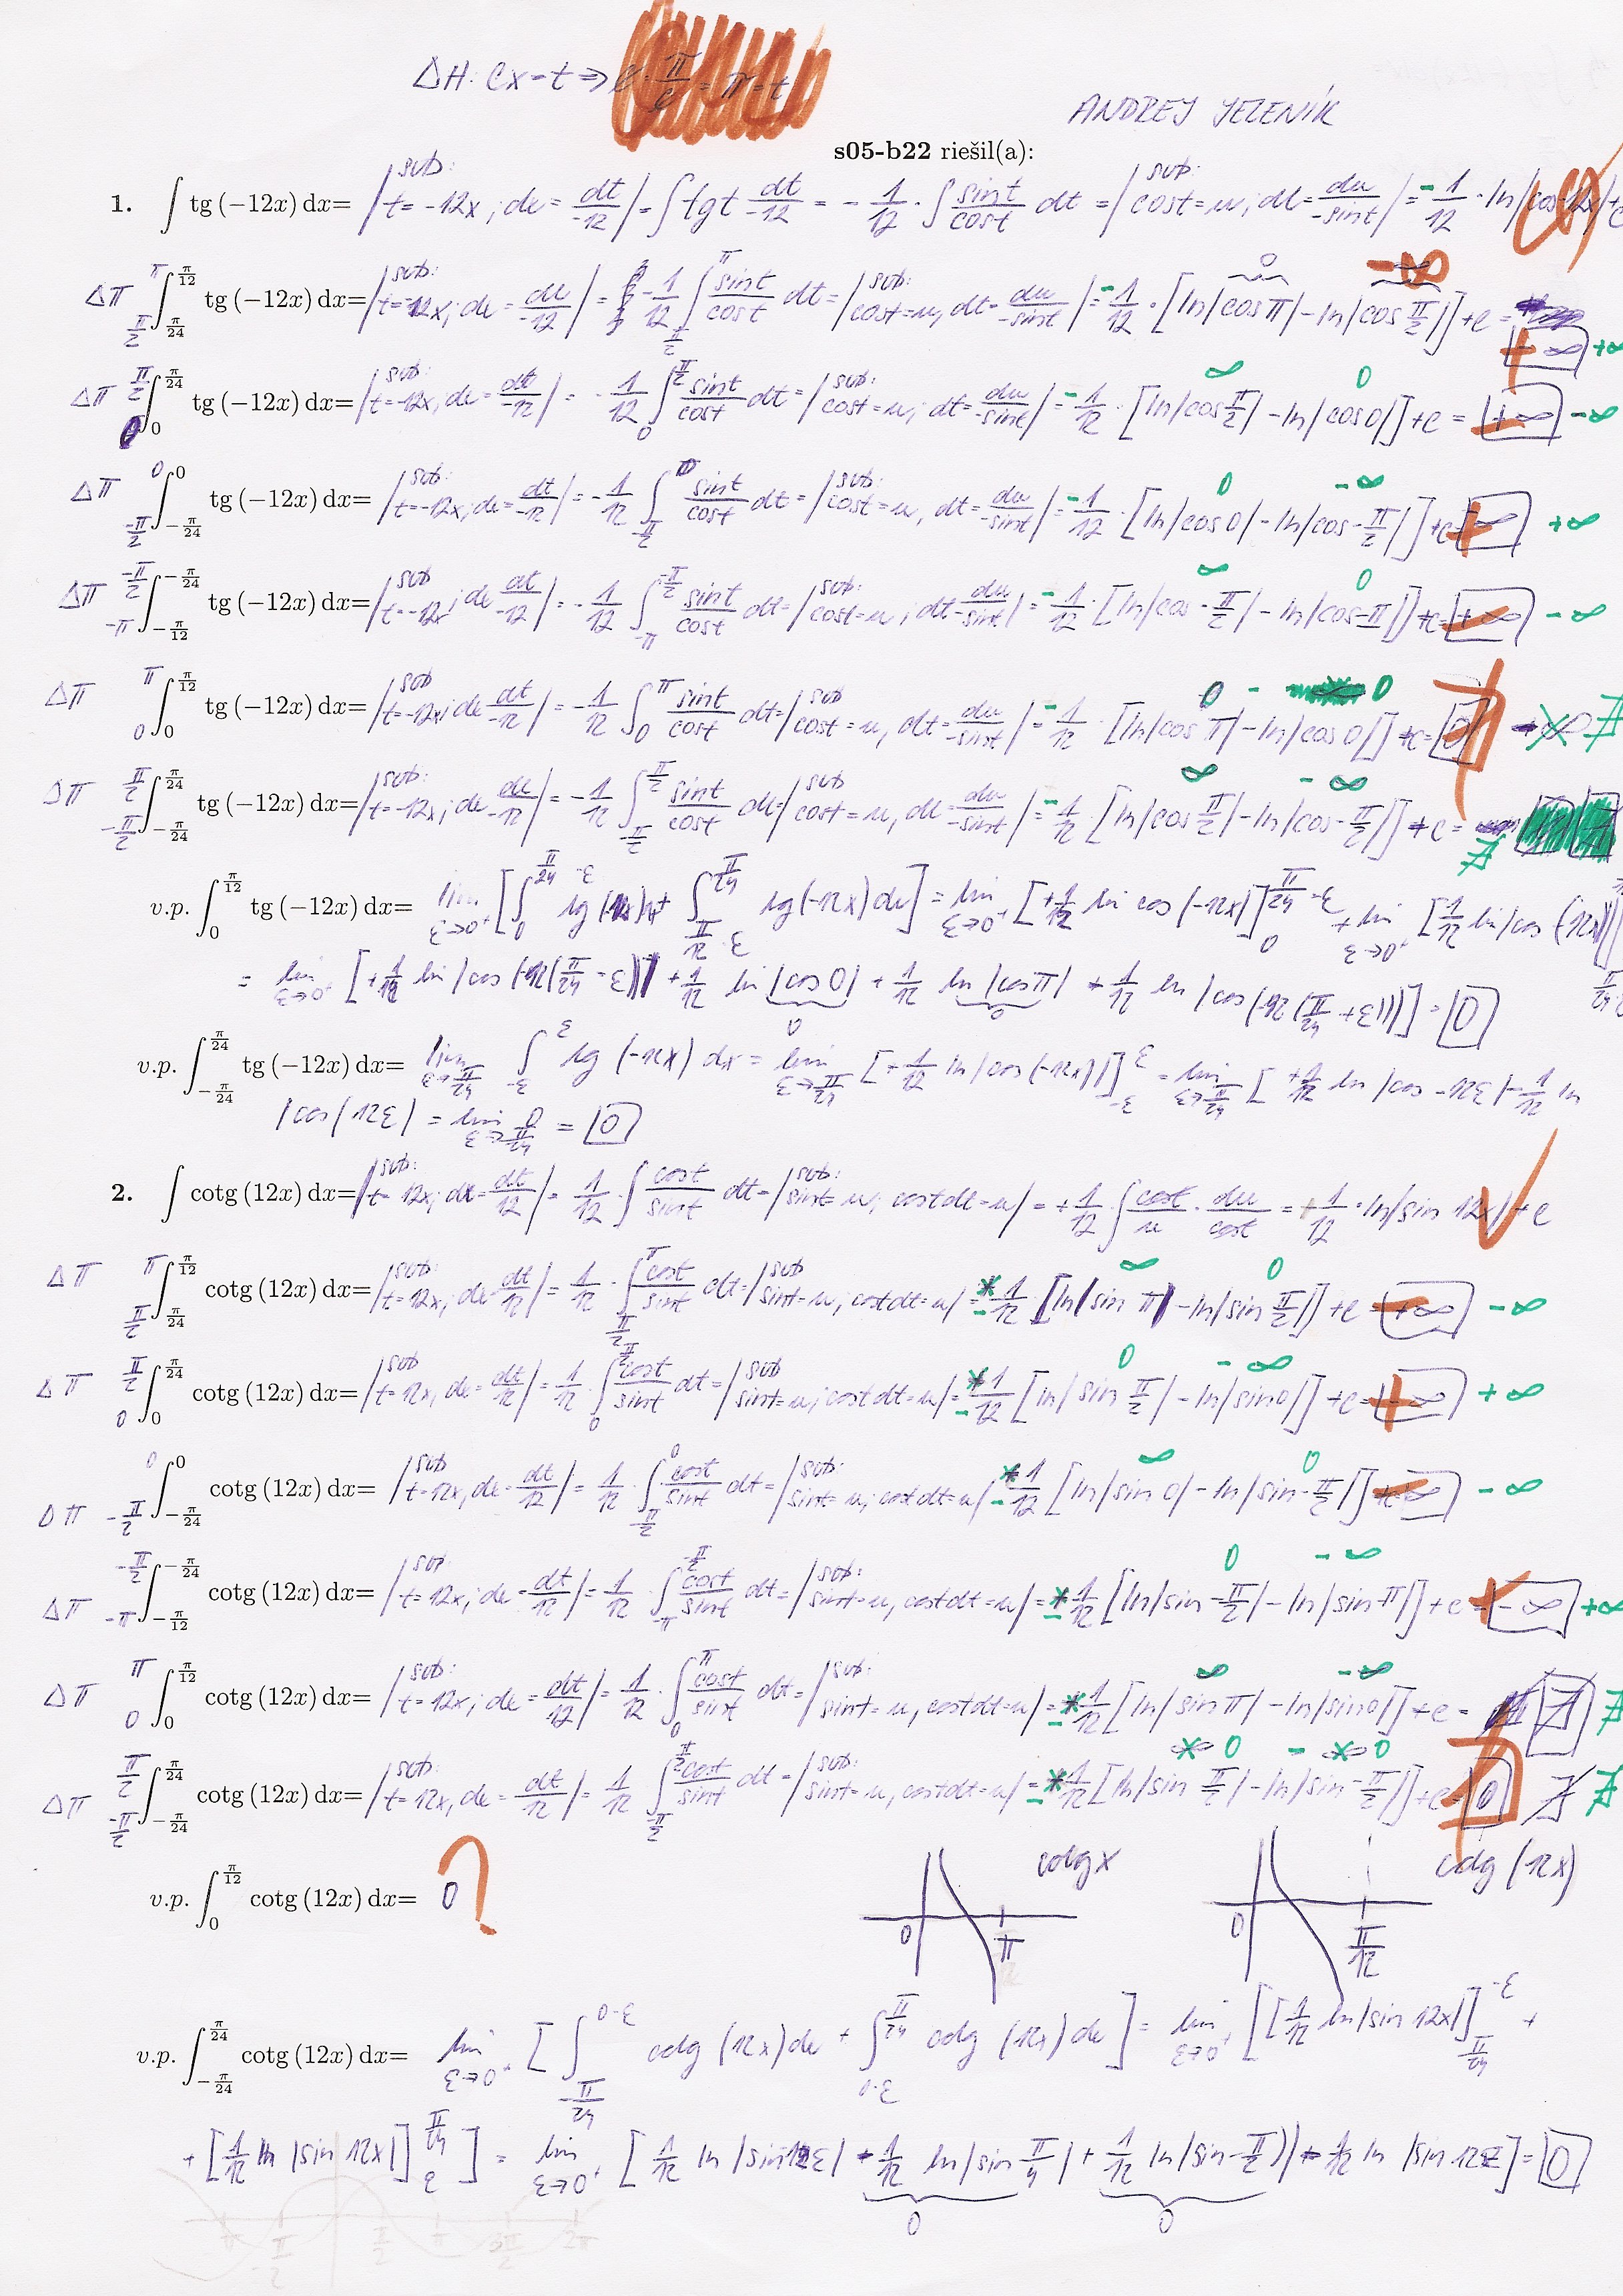 ΔH: Cx = t ⇒
ANDREJ JELENÍK
s05-b22 riešil(a):
1. ∫ tg (−12x) dx= | sub: t = −12x ; dx = dt/−12 | = ∫ tg t dt/−12 = − 1/12 · ∫ sin t/cos t dt = | sub: cos t = u ; dt = du/−sin t | = − 1/12 · ln|cos 12x| + c
Δπ ∫_{π/24}^{π/12} tg (−12x) dx= | sub: t = −12x ; dx = du/−12 | = − 1/12 ∫_{π/2}^{π} sin t/cos t dt = | sub: cos t = u, dt = du/−sin t | = − 1/12 · [ln|cos π| − ln|cos π/2|] + c = −∞ +∞
Δπ ∫_{0}^{π/24} tg (−12x) dx= | sub: t = −12x, dx = dt/−12 | = − 1/12 ∫_{0}^{π/2} sin t/cos t dt = | sub: cos t = u, dt = du/−sin t | = − 1/12 · [ln|cos π/2| − ln|cos 0|] + c = +∞ −∞
Δπ ∫_{−π/24}^{0} tg (−12x) dx= | sub: t = −12x, dx = dt/−12 | = − 1/12 ∫_{−π/2}^{0} sin t/cos t dt = | sub: cos t = u, dt = du/−sin t | = − 1/12 · [ln|cos 0| − ln|cos −π/2|] + c = −∞ +∞
Δπ ∫_{−π/12}^{−π/24} tg (−12x) dx= | sub t = −12x ; dx dt/−12 | = − 1/12 ∫_{−π}^{−π/2} sin t/cos t dt = | sub: cos t = u ; dt = du/−sin t | = − 1/12 · [ln|cos −π/2| − ln|cos −π|] + c = +∞ −∞
Δπ ∫_{0}^{π/12} tg (−12x) dx= | sub t = −12x ; dx dt/−12 | = − 1/12 ∫_{0}^{π} sin t/cos t dt = | sub cos t = u, dt = du/−sin t | = − 1/12 · [ln|cos π| − ln|cos 0|] + c = 0 ∄
Δπ ∫_{−π/24}^{π/24} tg (−12x) dx= | sub: t = −12x ; dx du/−12 | = − 1/12 ∫_{−π/2}^{π/2} sin t/cos t dt = | sub cos t = u, dt = du/−sin t | = − 1/12 · [ln|cos π/2| − ln|cos −π/2|] + c = ∄
v.p. ∫_{0}^{π/12} tg (−12x) dx= lim_{ε→0+} [∫_{0}^{π/24 −ε} + ∫ tg (−12x) dx] = lim_{ε→0+} [+1/12 ln cos (−12x)]_{0}^{π/24 −ε} + lim_{ε→0+} [1/12 ln|cos (12x)|]
= lim_{ε→0+} [+1/12 ln|cos (−12(π/24 − ε))| + 1/12 ln|cos 0| + 1/12 ln|cos π| + 1/12 ln|cos (−12(π/24 + ε))|] = 0
v.p. ∫_{−π/24}^{π/24} tg (−12x) dx= lim_{ε→π/24} ∫_{−ε}^{ε} tg (−12x) dx = lim_{ε→π/24} [+1/12 ln|cos (−12x)|]_{−ε}^{ε} = lim_{ε→π/24} [+1/12 ln|cos −12ε| − 1/12 ln
|cos (12ε| = lim_{ε→π/24} 0 = 0
2. ∫ cotg (12x) dx= | sub: t = 12x ; dx = dt/12 | = 1/12 · ∫ cos t/sin t dt = | sub: sin t = u ; cos t dt = u | = + 1/12 · ∫ cos t/u · du/cos t = + 1/12 · ln|sin 12x| + c
Δπ ∫_{π/24}^{π/12} cotg (12x) dx= | sub: t = 12x, dx = dt/12 | = 1/12 · ∫_{π/2}^{π} cos t/sin t dt = | sub sin t = u ; cos t dt = u | = − 1/12 [ln|sin π| − ln|sin π/2|] + c = +∞ −∞
Δπ ∫_{0}^{π/24} cotg (12x) dx= | sub t = 12x, dx = dt/12 | = 1/12 · ∫_{0}^{π/2} cos t/sin t dt = | sub sin t = u ; cos t dt = u | = − 1/12 [ln|sin π/2| − ln|sin 0|] + c = −∞ +∞
Δπ ∫_{−π/24}^{0} cotg (12x) dx= | sub t = 12x, dx = dt/12 | = 1/12 · ∫_{−π/2}^{0} cos t/sin t dt = | sub: sin t = u, cos t dt = u | − 1/12 [ln|sin 0| − ln|sin −π/2|] + c = ∞ −∞
Δπ ∫_{−π/12}^{−π/24} cotg (12x) dx= | sub t = 12x ; dx = dt/12 | = 1/12 · ∫_{−π}^{−π/2} cos t/sin t dt = | sub: sin t = u, cos t dt = u | = − 1/12 [ln|sin −π/2| − ln|sin −π|] + c = −∞ +∞
Δπ ∫_{0}^{π/12} cotg (12x) dx= | sub: t = 12x ; dx = dt/12 | = 1/12 · ∫_{0}^{π} cos t/sin t dt = | sub: sin t = u, cos t dt = u | = − 1/12 [ln|sin π| − ln|sin 0|] + c = ∄ ∄
Δπ ∫_{−π/24}^{π/24} cotg (12x) dx= | sub: t = 12x, dx = dt/12 | = 1/12 · ∫_{−π/2}^{π/2} cos t/sin t dt = | sub: sin t = u, cos t dt = u | = − 1/12 [ln|sin π/2| − ln|sin −π/2|] + c = 0 ∄ ∄
v.p. ∫_{0}^{π/12} cotg (12x) dx= 0 ?
cotg x
0 π
cotg (12x)
0 π/12
v.p. ∫_{−π/24}^{π/24} cotg (12x) dx= lim_{ε→0+} [∫_{−π/24}^{0−ε} cotg (12x) dx + ∫_{0−ε}^{π/24} cotg (12x) dx] = lim_{ε→0+} [[1/12 ln|sin 12x|]_{π/24}^{−ε} +
+ [1/12 ln |sin 12x|]_{ε}^{π/24}] = lim_{ε→0+} [1/12 ln|sin 12ε| + 1/12 ln|sin π/4| + 1/12 ln|sin −π/2)| + 1/12 ln |sin 12ε] = 0
0 0